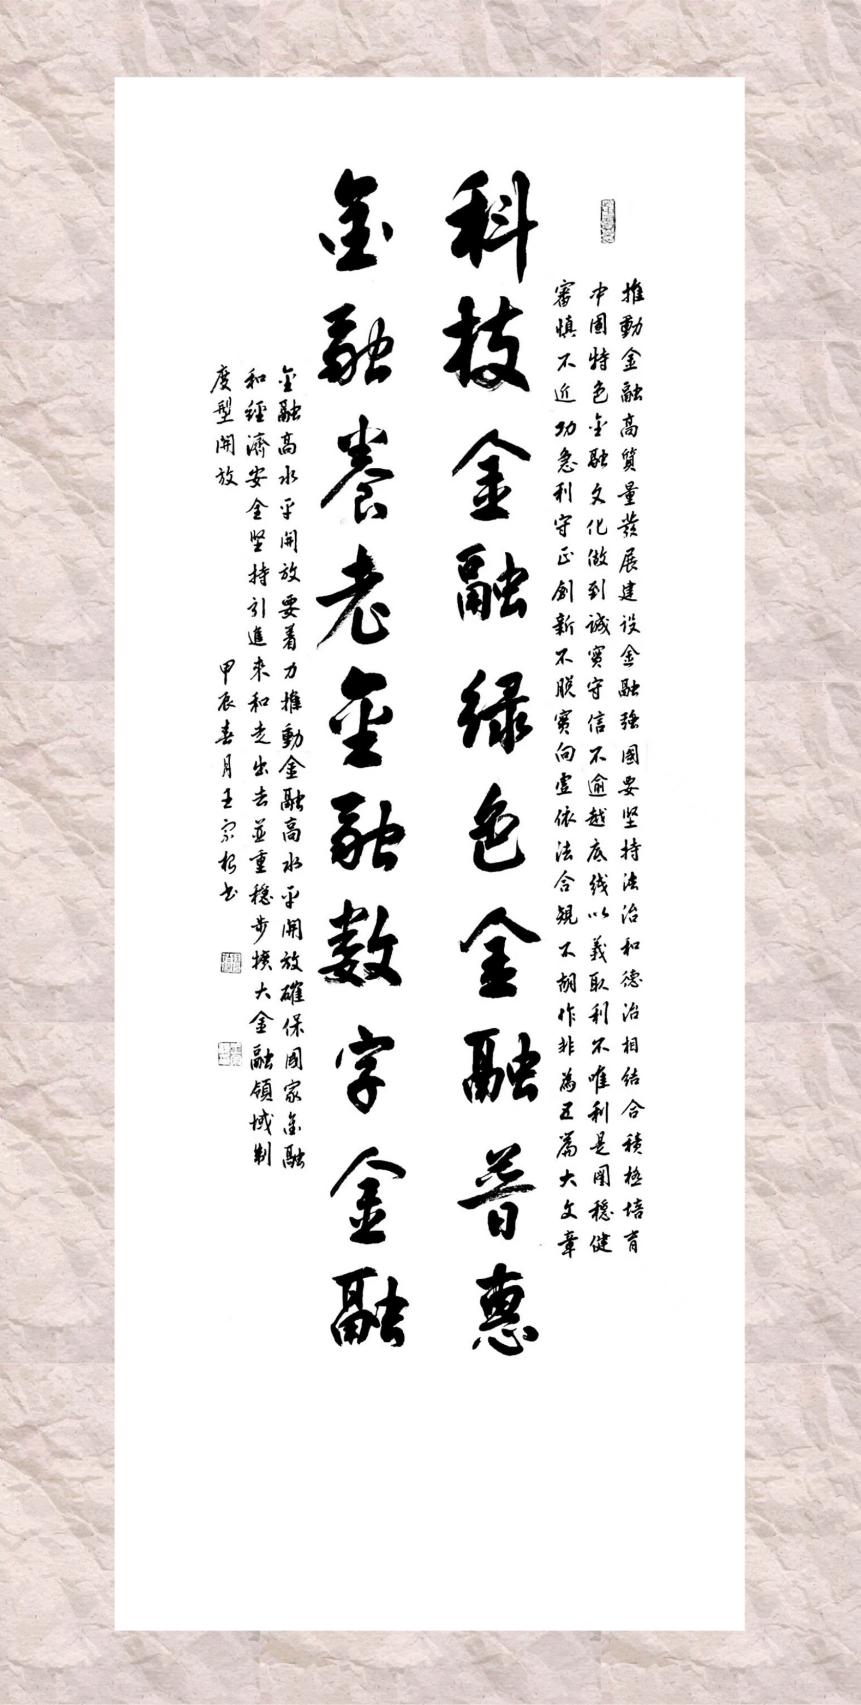 推動金融高質量發展建设金融強國要坚持法治和德治相结合積極培育
中國特色金融文化做到诚實守信不逾越底线以義取利不唯利是圖穩健
審慎不近功急利守正創新不脱實向虚依法合規不胡作非為五篇大文章
科技金融绿色金融普惠
金融養老金融数字金融
金融高水平開放要着力推動金融高水平開放確保國家金融
和經濟安全坚持引進來和走出去並重穩步擴大金融領域制
度型開放
甲辰春月王宗松书